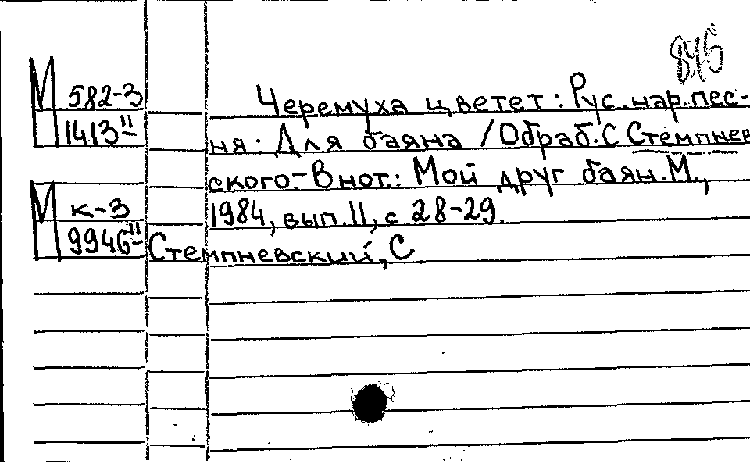 845
М 582-3
1413 II
Черемуха цветет: Рус. нар. пес-
ня: Для баяна / Обраб. С Стемпнев
ского.- В нот.: Мой друг баян. М.,
М к-3
1984, вып. 11, с 28-29.
9946 II
Стемпневский, С.